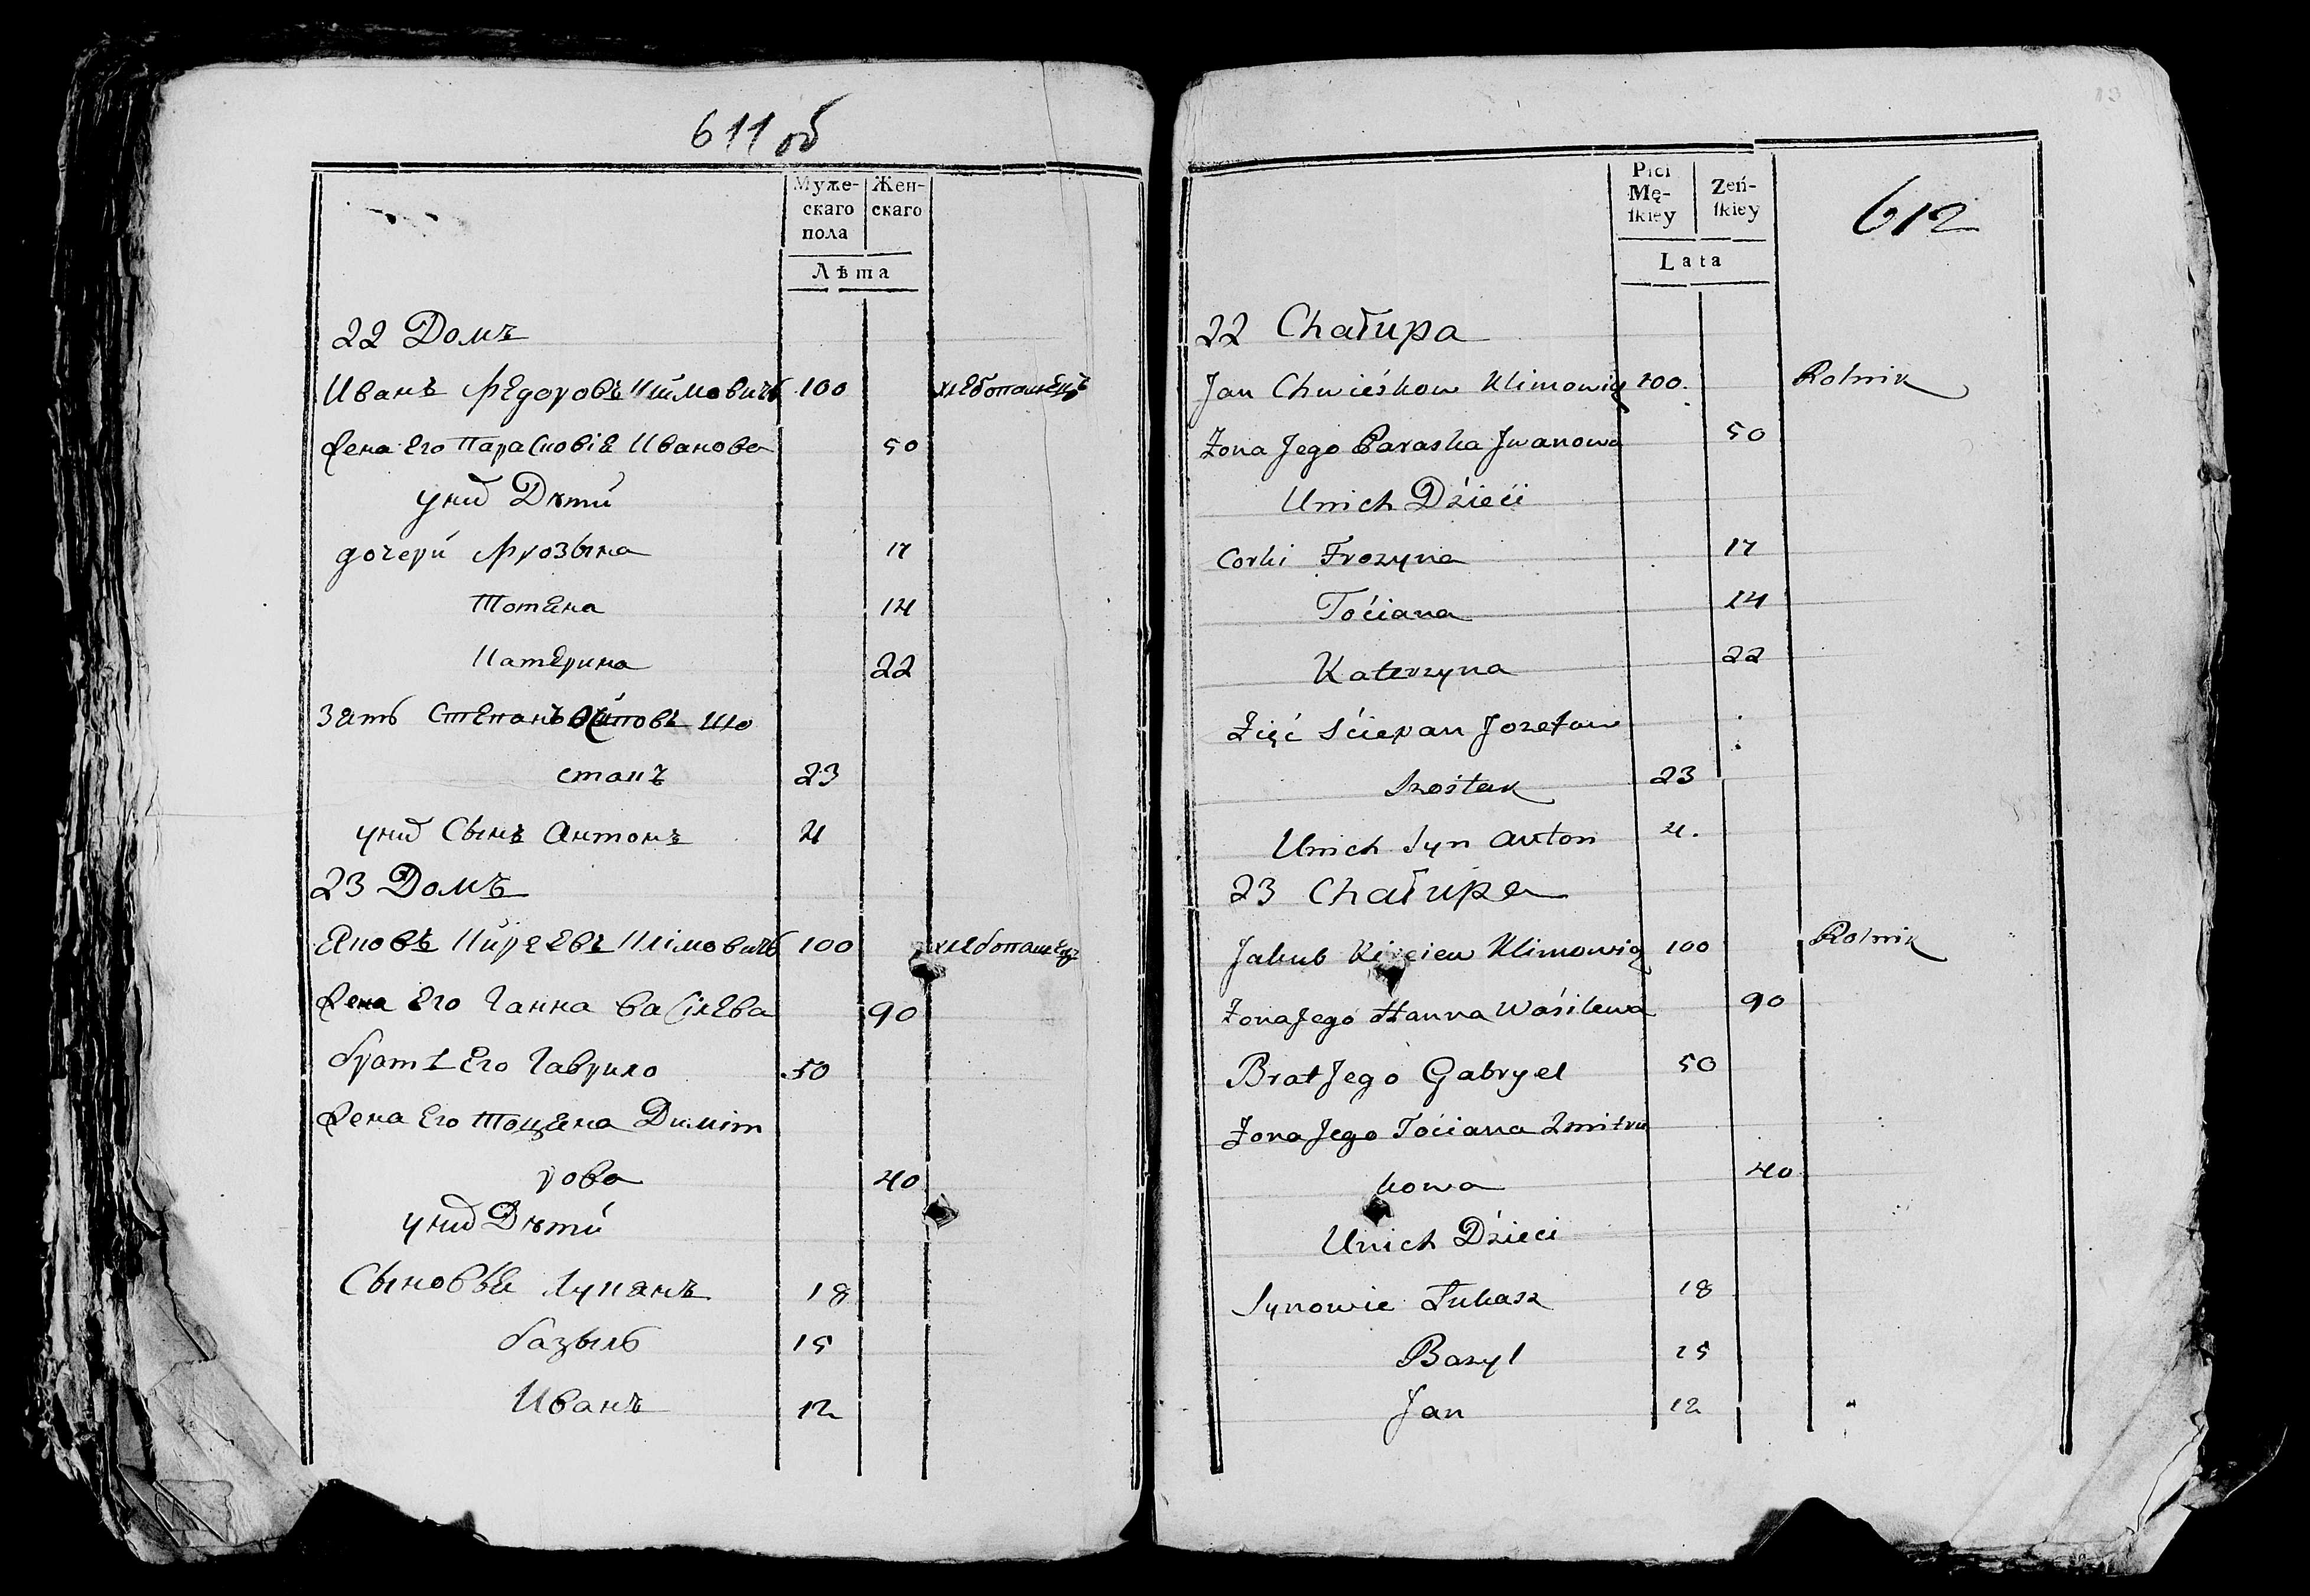 611 об
Муже-
скаго
пола
Жен-
скаго
Лѣта
22 Домъ
Иванъ Федоровъ Климовичъ 100 хлебопашецъ
Жена Его Парасковiя Иванова 50
у них Дѣти
дочери Фрозына 17
Тотяна 14
Катерина 22
Зять Степанъ Осиповъ Шо
стакъ 23
у них Сынъ Антонъ 4
23 Домъ
Яковъ Киреевъ Климовичъ 100 хлебопашецъ
Жена Его Ганна Васiлева 90
братъ Его Гаврило 50
Жена Его Тоцяна Димiт
рова 40
у них Дѣти
Сыновья Лукянъ 18
базыль 15
Иванъ 12
Płci
Mę-
ſkiey
Zeń-
ſkiey
Lata
612
22 Chałupa
Jan Chwieśkow Klimowicz 100. Rolnik
Żona Jego Paraska Jwanowa 50
Unich Dzieci
Corki Frozyna 17
Tóciana 14
Katerzyna 22
Zięć Sciepan Jozefow
Szostak 23
Unich Syn Anton 4.
23 Chałupa
Jakub Klimowicz 100 Rolnik
Żona Jego Hanna Waśilewa 90
Brat Jego Gabryel 50
Żona Jego Tóciana Zmitru
kowa 40
Unich Dzieci
Synowie Łukasz 18
Bazyl 15
Jan 12